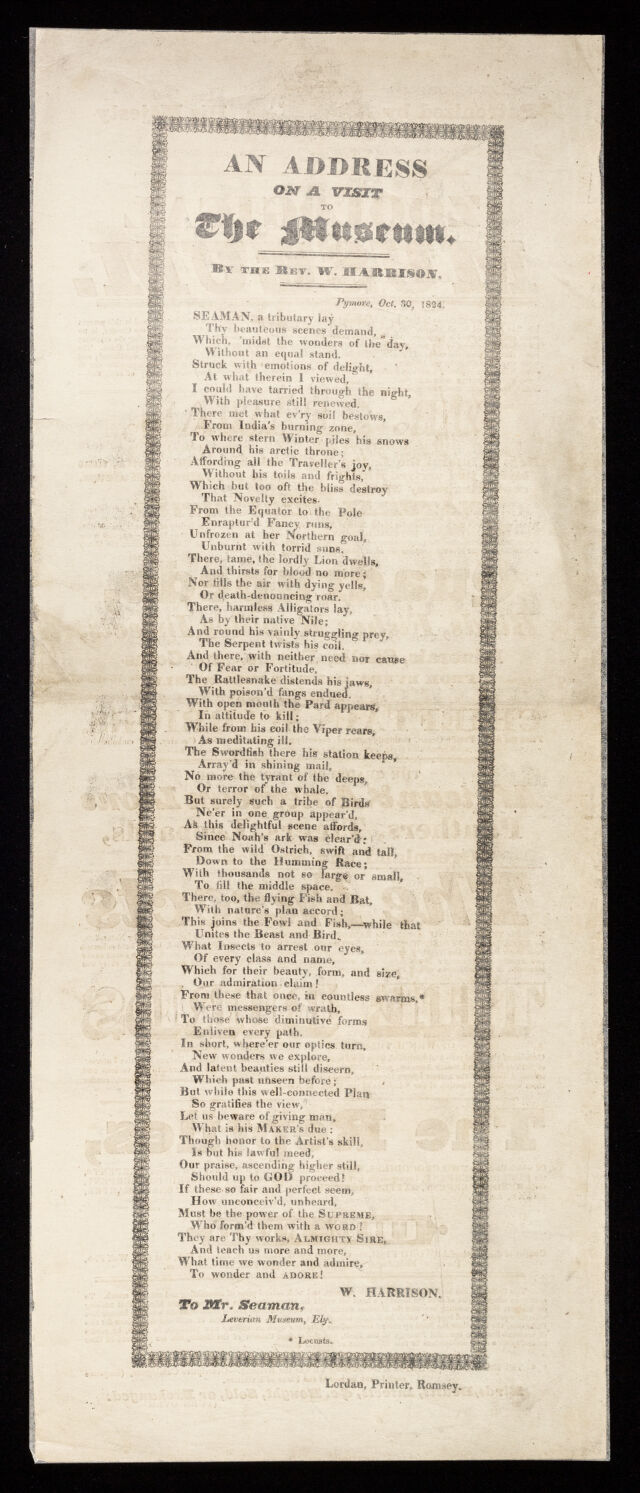 AN ADDRESS
ON A VISIT
TO
The Museum.
BY THE REV. W. HARRISON.
Pymore, Oct. 30, 1824.
SEAMAN, a tributary lay
Thy beauteous scenes demand,
Which, 'midst the wonders of the day,
Without an equal stand.
Struck with emotions of delight,
At what therein I viewed,
I could have tarried through the night,
With pleasure still renewed.
There met what ev'ry soil bestows,
From India's burning zone,
To where stern Winter piles his snows
Around his arctic throne;
Affording all the Traveller's joy,
Without his toils and frights,
Which but too oft the bliss destroy
That Novelty excites.
From the Equator to the Pole
Enraptur'd Fancy runs,
Unfrozen at her Northern goal,
Unburnt with torrid suns.
There, tame, the lordly Lion dwells,
And thirsts for blood no more;
Nor fills the air with dying yells,
Or death-denouncing roar.
There, harmless Alligators lay,
As by their native Nile;
And round his vainly struggling prey,
The Serpent twists his coil.
And there, with neither need nor cause
Of Fear or Fortitude,
The Rattlesnake distends his jaws,
With poison'd fangs endued.
With open mouth the Pard appears,
In attitude to kill;
While from his coil the Viper rears,
As meditating ill.
The Swordfish there his station keeps,
Array'd in shining mail,
No more the tyrant of the deeps,
Or terror of the whale.
But surely such a tribe of Birds
Ne'er in one group appear'd,
As this delightful scene affords,
Since Noah's ark was clear'd:
From the wild Ostrich, swift and tall,
Down to the Humming Race;
With thousands not so large or small,
To fill the middle space.
There, too, the flying Fish and Bat,
With nature's plan accord;
This joins the Fowl and Fish,—while that
Unites the Beast and Bird.
What Insects to arrest our eyes,
Of every class and name,
Which for their beauty, form, and size,
Our admiration claim!
From these that once, in countless swarms,*
Were messengers of wrath,
To those whose diminutive forms
Enliven every path.
In short, where'er our optics turn,
New wonders we explore,
And latent beauties still discern,
Which past unseen before;
But while this well-connected Plan
So gratifies the view,
Let us beware of giving man,
What is his MAKER's due:
Though honor to the Artist's skill,
Is but his lawful meed,
Our praise, ascending higher still,
Should up to GOD proceed!
If these so fair and perfect seem,
How unconceiv'd, unheard,
Must be the power of the SUPREME,
Who form'd them with a WORD!
They are Thy works, ALMIGHTY SIRE,
And teach us more and more,
What time we wonder and admire,
To wonder and ADORE!
W. HARRISON.
To Mr. Seaman,
Leverian Museum, Ely.
* Locusts.
Lordan, Printer, Romsey.